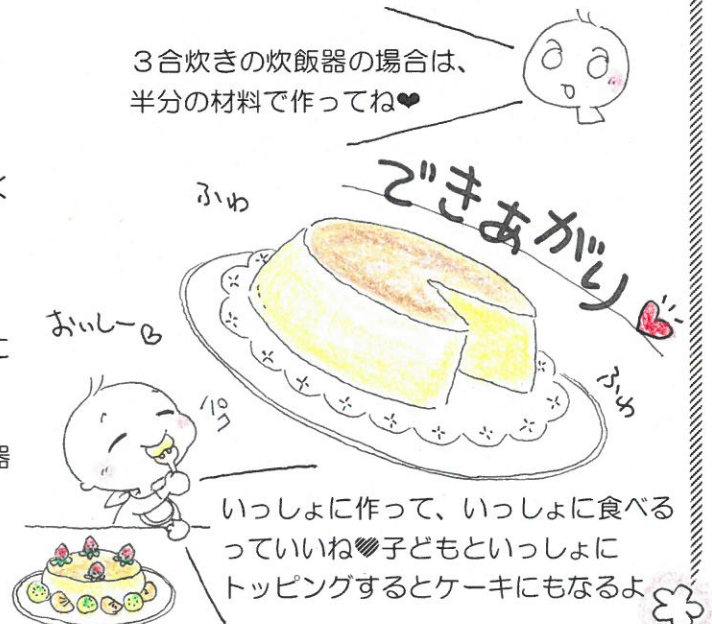 3合炊きの炊飯器の場合は、
半分の材料で作ってね❤
できあがり
ふわ
おいしー
ふわ
パク
いっしょに作って、いっしょに食べる
っていいね❤子どもといっしょに
トッピングするとケーキにもなるよ